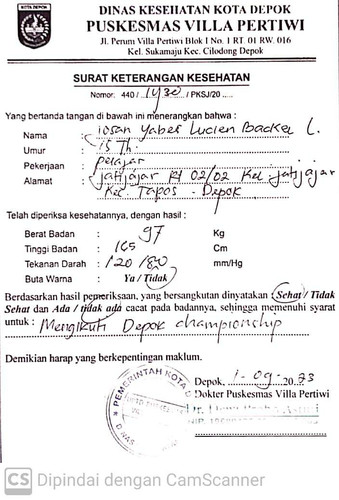 DINAS KESEHATAN KOTA DEPOK
PUSKESMAS VILLA PERTIWI
Jl. Perum Villa Pertiwi Blok I No. 1 RT. 01 RW. 016
Kel. Sukamaju Kec. Cilodong Depok
SURAT KETERANGAN KESEHATAN
Nomor: 440 / 1430 / PKSJ/20 .....
Yang bertanda tangan di bawah ini menerangkan bahwa :
Nama : Yaber Lucien Backer L.
Umur : 15 Th.
Pekerjaan : pelajar
Alamat : Jatijajar Rt 02/02 Kel Jatijajar
Kec. Tapos - Depok
Telah diperiksa kesehatannya, dengan hasil :
Berat Badan : 97 Kg
Tinggi Badan : 165 Cm
Tekanan Darah : 120/80 mm/Hg
Buta Warna : Ya / Tidak
Berdasarkan hasil pemeriksaan, yang bersangkutan dinyatakan : Sehat / Tidak
Sehat dan Ada / tidak ada cacat pada badannya, sehingga memenuhi syarat
untuk : Mengikuti Depok championship
Demikian harap yang berkepentingan maklum.
Depok, 1-09-2023
Dokter Puskesmas Villa Pertiwi
PEMERINTAH KOTA
DINAS
CS Dipindai dengan CamScanner